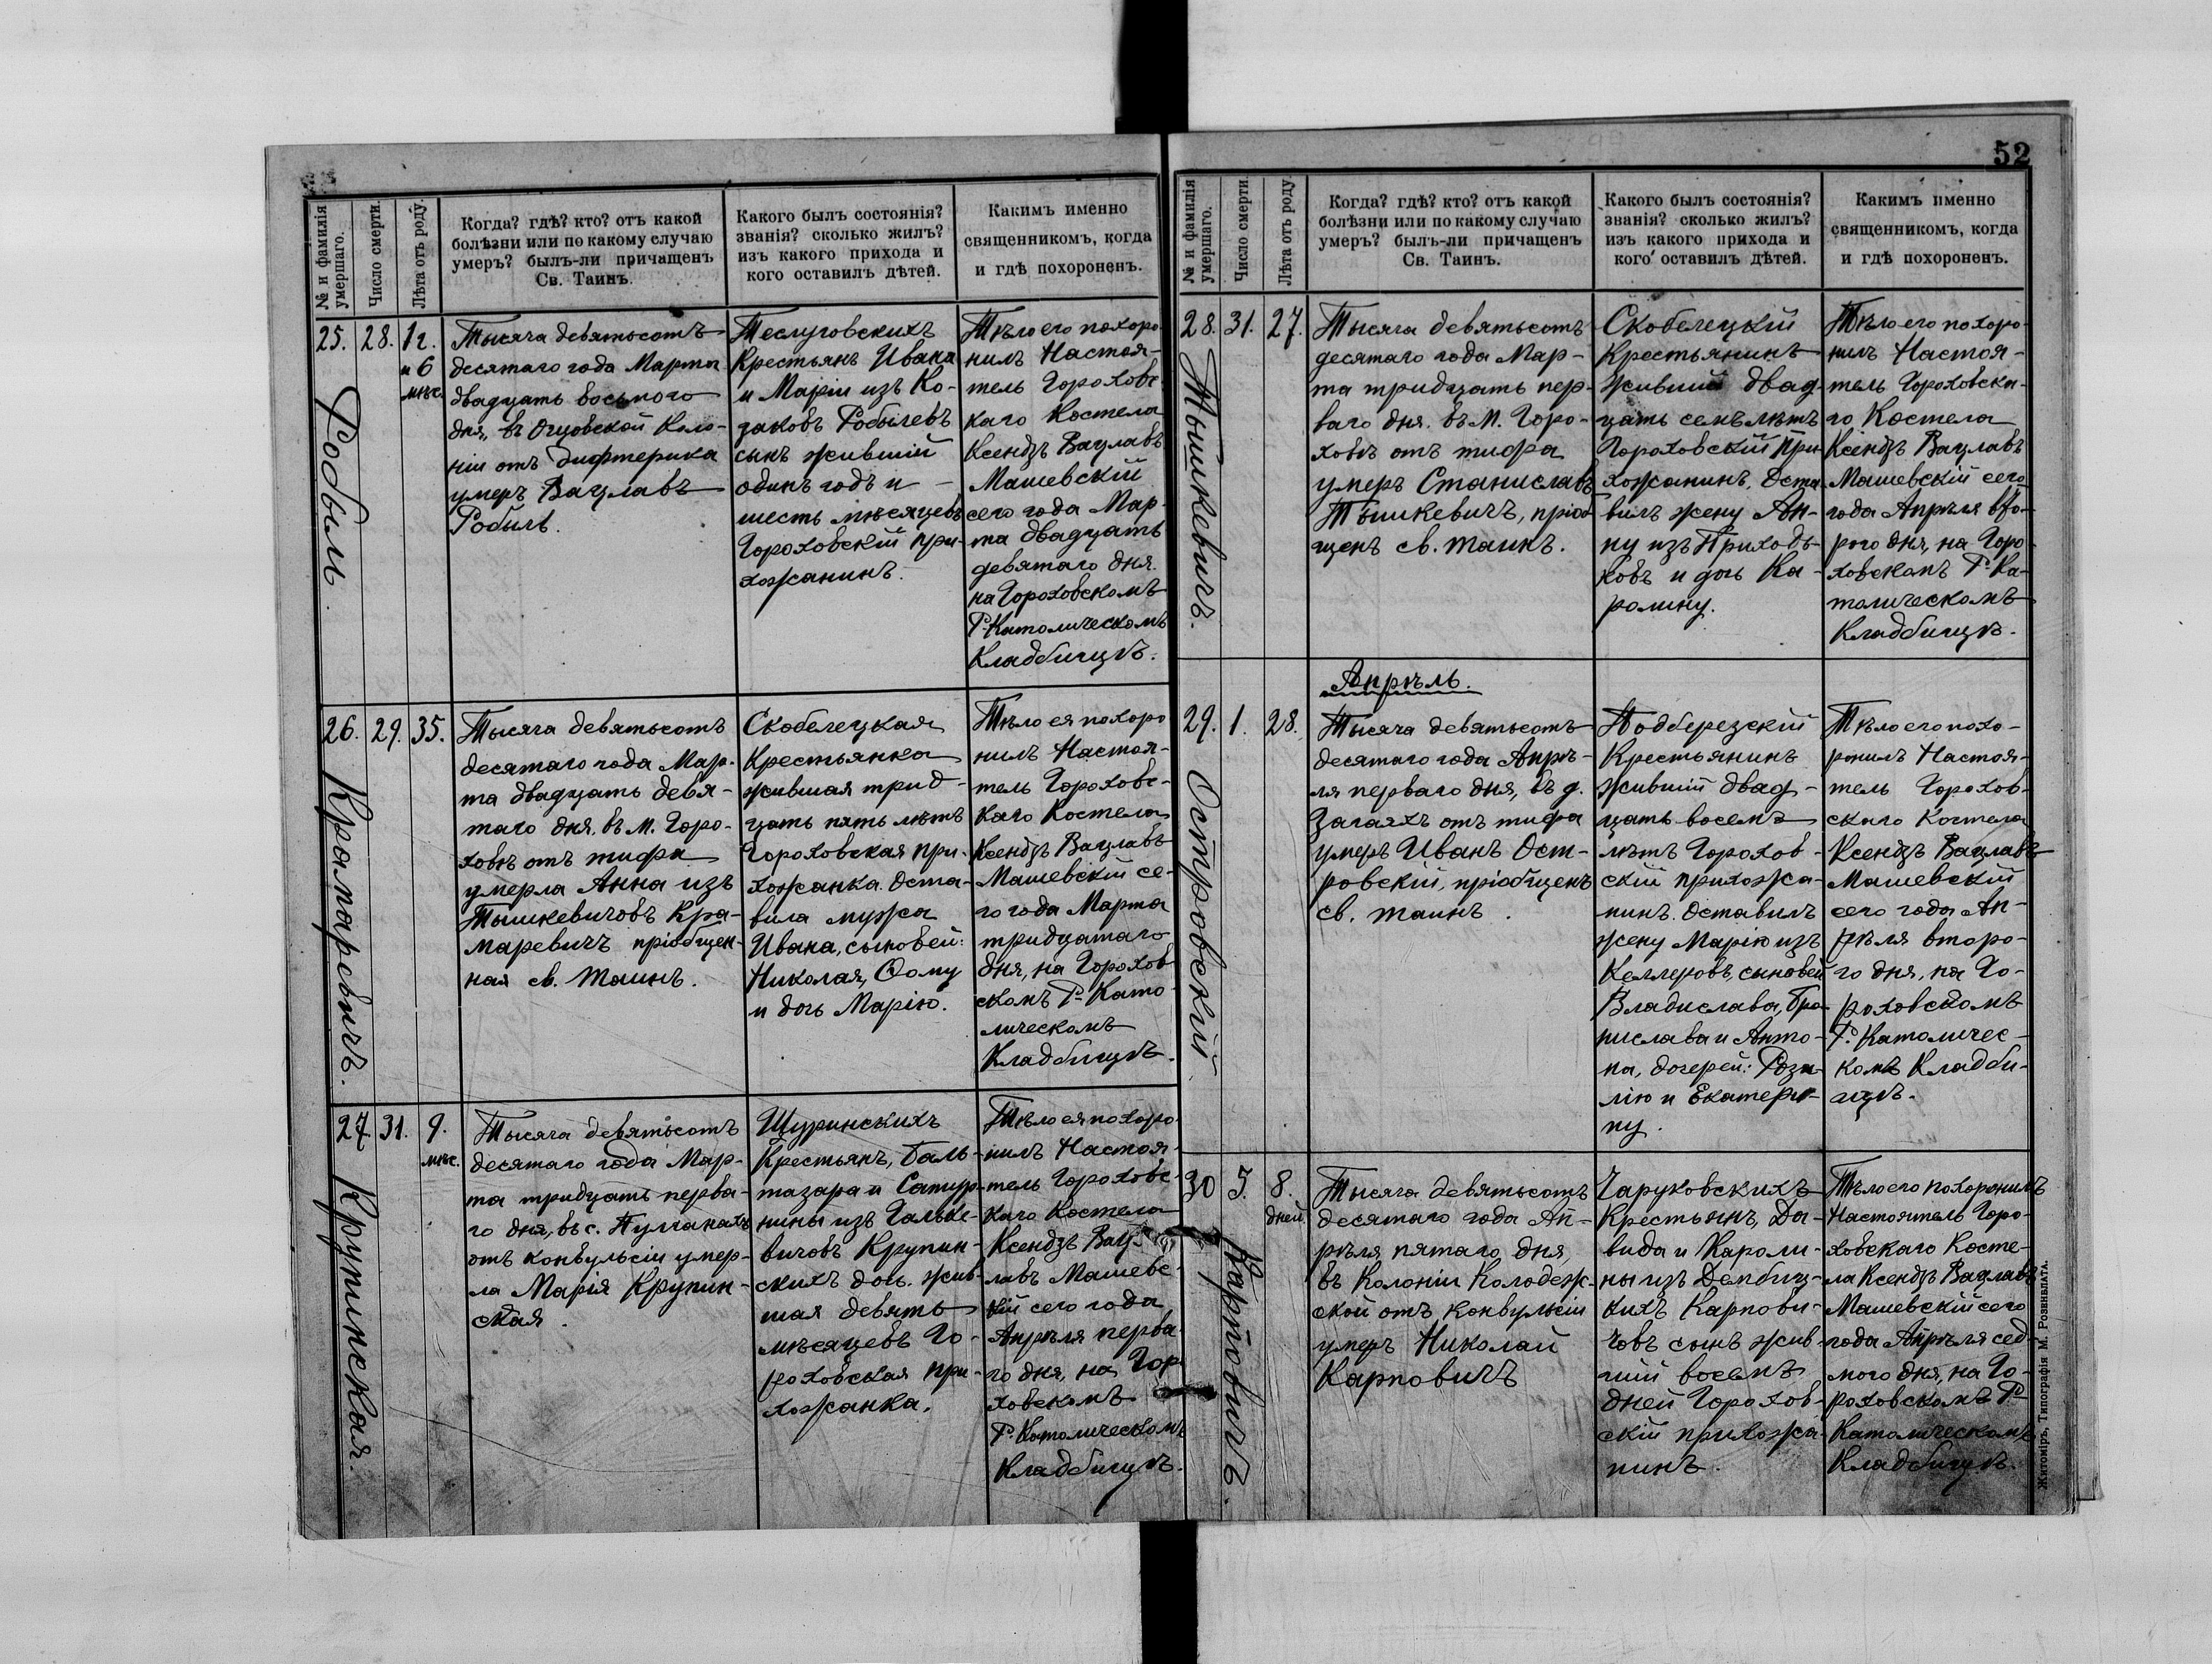 № и фамилія умершаго.
Число смерти.
Лѣта отъ роду.
Когда? гдѣ? кто? отъ какой
болѣзни или по какому случаю
умеръ? былъ-ли причащенъ
Св. Таинъ.
Какого былъ состоянія?
званія? сколько жилъ?
изъ какого прихода и
кого оставилъ дѣтей.
Какимъ именно
священникомъ, когда
и гдѣ похороненъ.
25.
Робыль
28.
1 г.
и 6
мѣс.
Тысяча девятьсотъ
десятаго года Марта
двадцать восьмого
дня, въ Отцовской Коло-
ніи отъ дифтерика
умеръ Вацлавъ
Робыль.
Теслуговскихъ
Крестьянъ Ивана
и Маріи изъ Ко-
заковъ Робылевъ
сынъ жившій
одинъ годъ и
шесть мѣсяцевъ
Гороховскій при-
хожанинъ.
Тѣло его похоро-
нилъ Настоя-
тель Гороховс-
каго Костела
Ксендзъ Вацлавъ
Машевскій
сего года Мар-
та двадцать
девятаго дня.
на Гороховскомъ
Р-Католическомъ
Кладбищѣ.
26.
Крамаревичъ.
29.
35.
Тысяча девятьсотъ
десятаго года Мар-
та двадцать девя-
таго дня, въ м. Горо-
ховѣ отъ тифа
умерла Анна изъ
Тышкевичовъ Кра-
маревичъ пріобщен-
ная св. Таинъ.
Скобелецкая
Крестьянка
жившая трид-
цать пять лѣтъ
Гороховская при-
хожанка. Оста-
вила мужа
Ивана, сыновей:
Николая, Ѳому
и дочь Марію.
Тѣло ея похоро
нилъ Настоя-
тель Гороховс-
каго Костела
Ксендзъ Вацлавъ
Машевскій се-
го года Марта
тридцатаго
дня, на Горохов
скомъ Р-Като-
лическомъ
Кладбищѣ.
27.
Крупинская.
31.
9.
мѣс.
Тысяча девятьсотъ
десятаго года Мар-
та тридцать перва-
го дня, въ с. Пулганахъ
отъ конвульсіи умер-
ла Марія Крупин-
ская.
Щуринскихъ
Крестьянъ, Баль-
тазара и Сатур-
нины изъ Гальке-
вичовъ Крупин-
скихъ дочь. жив-
шая девять
мѣсяцевъ Го-
роховская при-
хожанка.
Тѣло ея похоро-
нилъ Настоя-
тель Гороховс-
каго Костела
Ксендзъ Вац-
лавъ Машевс-
кій сего года
Апрѣля перва-
го дня, на Гор
ховскомъ
Р. Католическомъ
Кладбищѣ.
52
№ и фамилія умершаго.
Число смерти.
Лѣта отъ роду.
Когда? гдѣ? кто? отъ какой
болѣзни или по какому случаю
умеръ? былъ-ли причащенъ
Св. Таинъ.
Какого былъ состоянія?
званія? сколько жилъ?
изъ какого прихода и
кого оставилъ дѣтей.
Какимъ именно
священникомъ, когда
и гдѣ похороненъ.
28.
Тышкевичъ.
31.
27.
Тысяча девятьсотъ
десятаго года Мар-
та тридцать пер-
ваго дня. въ м. Горо-
ховѣ отъ тифа
умеръ Станиславъ
Тышкевичъ, пріоб
щенъ св. таинъ.
Скобелецкій
Крестьянинъ
жившій двад-
цать семь лѣтъ
Гороховскій при
хожанинъ. Оста
вилъ жену Ан-
ну изъ Приходь-
ковъ и дочь Ка-
ролину.
Тѣло его похоро-
нилъ Настоя-
тель Гороховска-
го Костела
Ксендзъ Вацлавъ
Машевскій сего
года Апрѣля вто-
рого дня, на Горо-
ховскомъ Р-Ка-
толическомъ
Кладбищѣ.
Апрѣль.
29.
Островскій
1.
28.
Тысяча девятьсотъ
десятаго года Апрѣ-
ля перваго дня, въ д.
Загаяхъ отъ тифа
умеръ Иванъ Ост-
ровскій, пріобщенъ
св. таинъ.
Подберезскій
Крестьянинъ
жившій двад-
цать восемь
лѣтъ Горохов-
скій прихожа-
нинъ. Оставилъ
жену Марію изъ
Келлеровъ, сыновей
Владислава, Бро-
нислава и Анто-
на, дочерей: Роза-
лію и Екатери-
ну.
Тѣло его похо-
ронилъ Настоя-
тель Горохов-
скаго Костела
Ксендзъ Вацлавъ
Машевскій
сего года Ап-
рѣля второ-
го дня, на Го-
роховскомъ
Р. Католичес-
комъ Кладби-
щѣ.
30
Карповичъ.
5.
8.
дней
Тысяча девятьсотъ
десятаго года Ап-
рѣля пятаго дня,
въ Колоніи Колодеж-
ской отъ конвульсіи
умеръ Николай
Карповичъ
Чаруковскихъ
Крестьянъ, Да-
вида и Кароли-
ны изъ Дембиц-
кихъ Карпови-
човъ сынъ жив-
шій восемь
дней Горохов-
скій прихожа-
нинъ.
Тѣло его похоронилъ
Настоятель Горо-
ховскаго Косте-
ла Ксендзъ Вацлавъ
Машевскій сего
года Апрѣля сед
мого дня, на Го-
роховскомъ Р-
Католическомъ
Кладбищѣ.
Житоміръ, Типографія М. Розенблата.